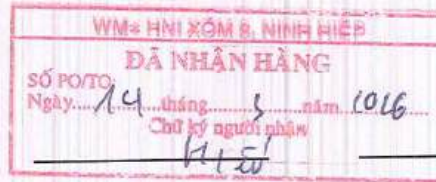 WM+ HNI XÓM 8, NINH HIỆP
ĐÃ NHẬN HÀNG
SỐ PO/TO
Ngày 14 tháng 5 năm 2026
Chữ ký người nhận
HIẾU